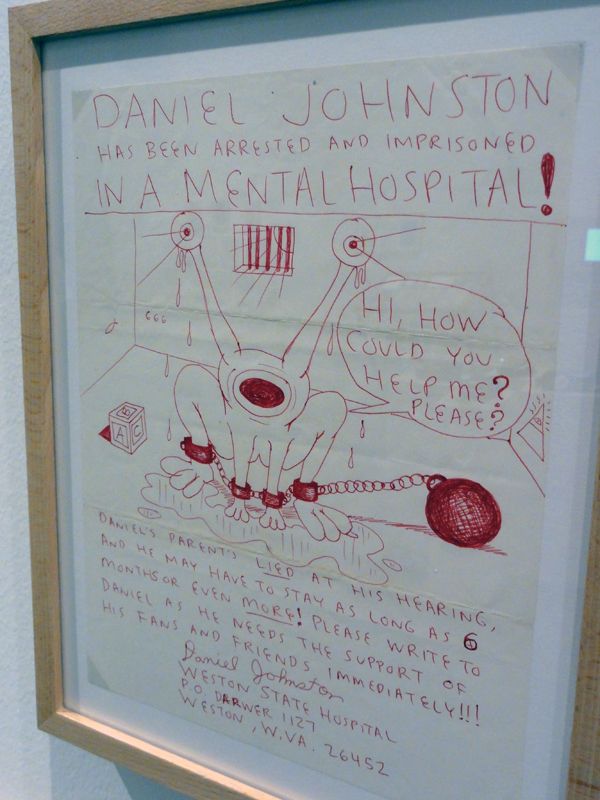 DANIEL JOHNSTON
HAS BEEN ARRESTED AND IMPRISONED
IN A MENTAL HOSPITAL!
666
HI, HOW
COULD YOU
HELP ME?
PLEASE?
B
A C
DANIEL'S PARENT'S LIED AT HIS HEARING,
AND HE MAY HAVE TO STAY AS LONG AS 6
MONTHS OR EVEN MORE! PLEASE WRITE TO
DANIEL AS HE NEEDS THE SUPPORT OF
HIS FANS AND FRIENDS IMMEDIATELY!!!
Daniel Johnston
WESTON STATE HOSPITAL
P.O. DARWER 1127
WESTON, W.VA. 26452